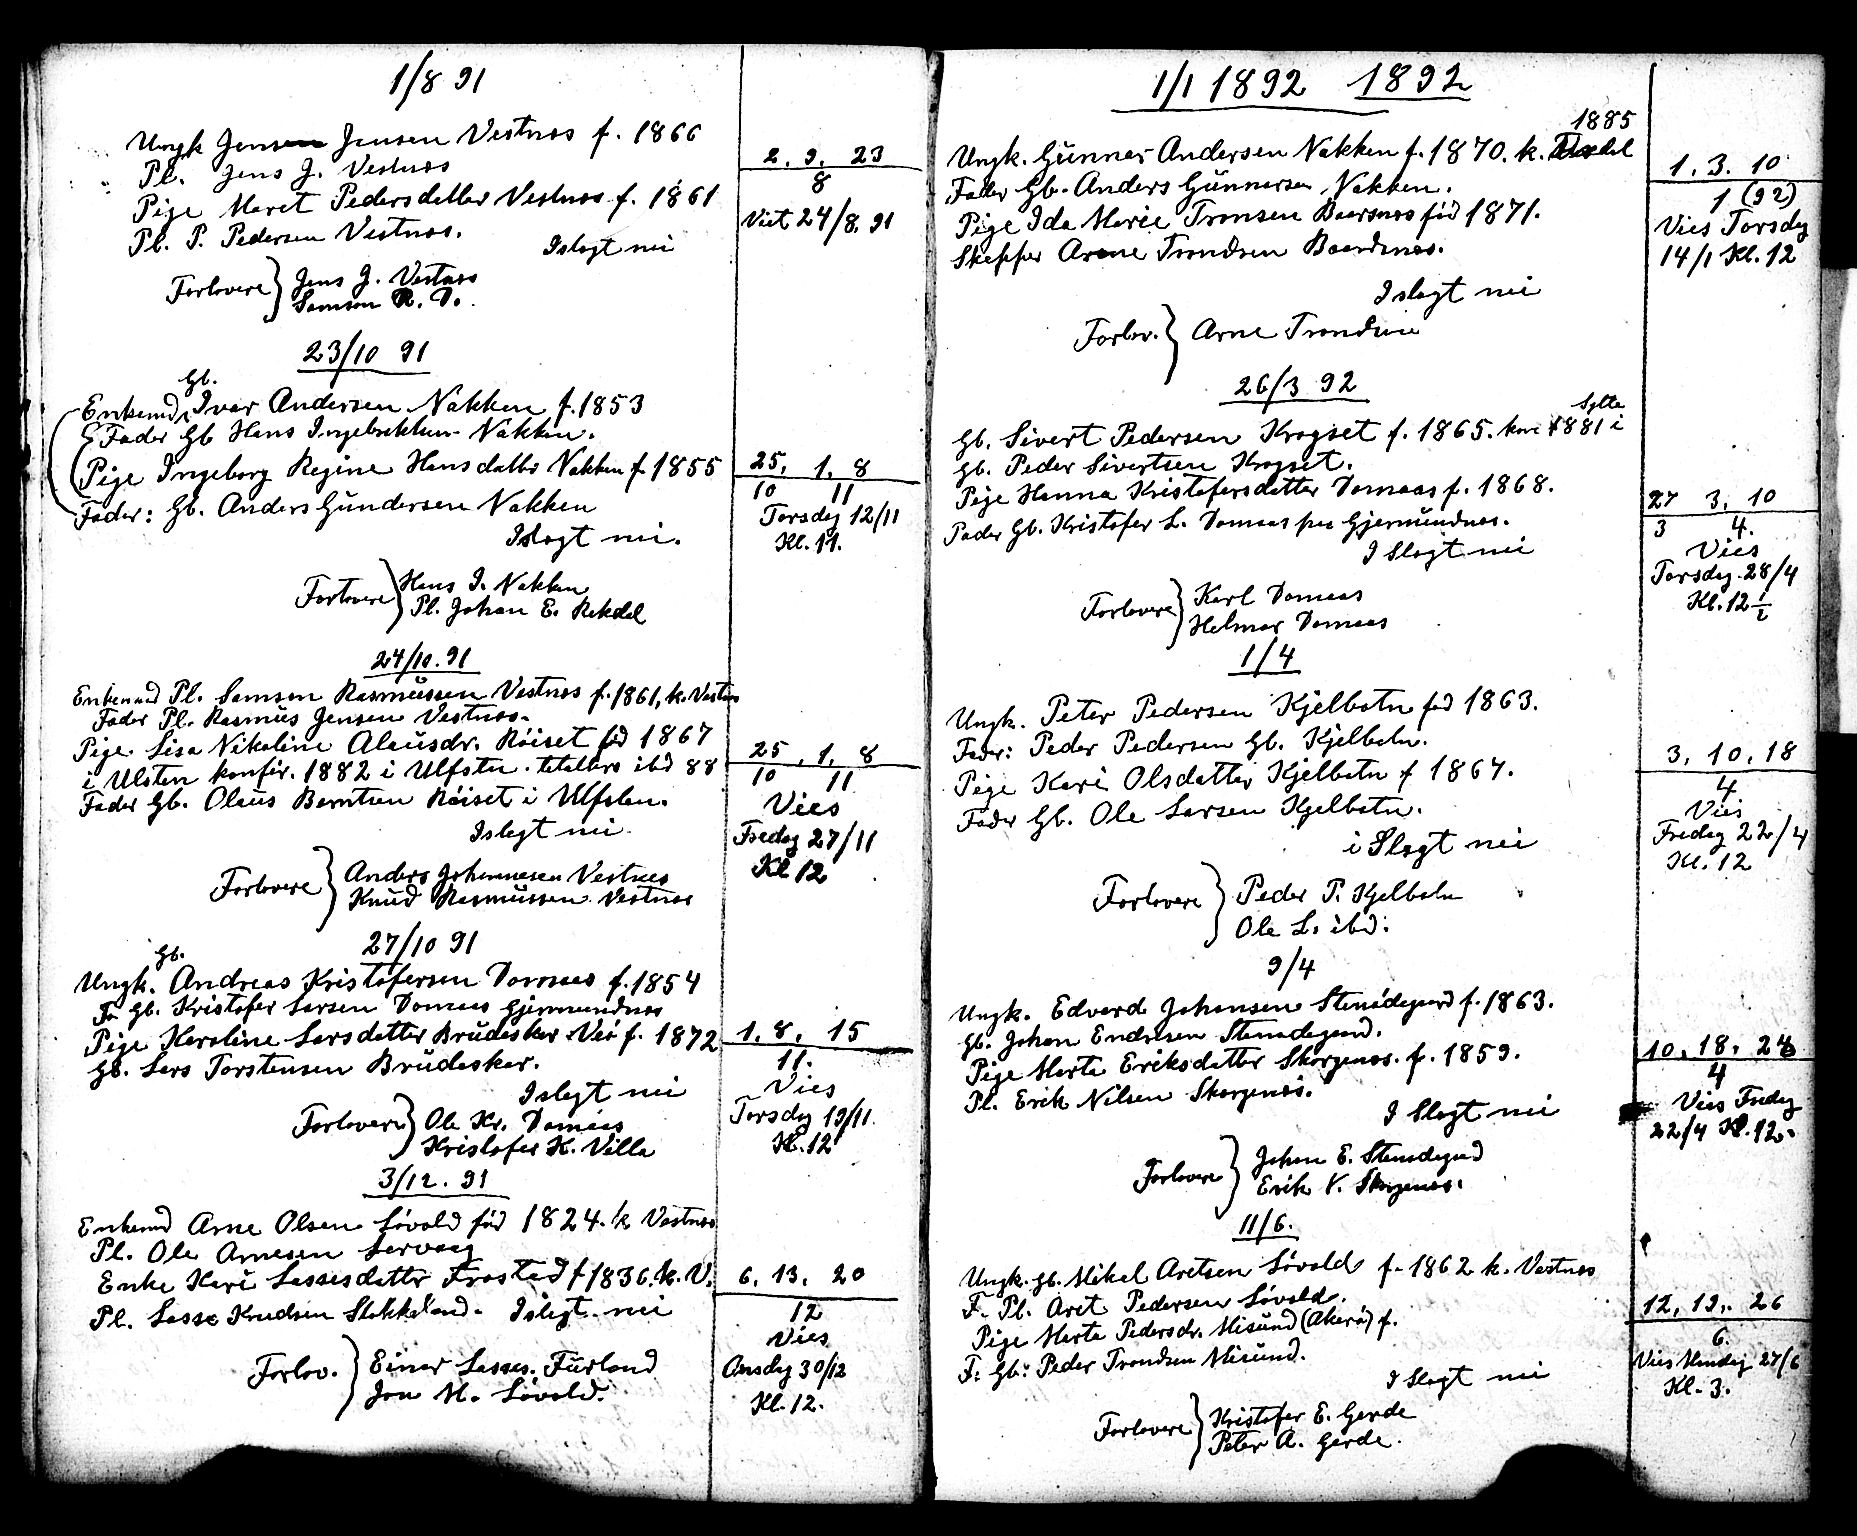 1/8 91
Ungk Jens Jensen Vestnæs f. 1866
Pl. Jens J. Vestnæs
Pige Maret Pedersdatter Vestnæs f. 1861
Pl. P. Pedersen Vestnæs.
I slægt nei
Forlovere } Jens J. Vestnæs
Samson R. D.
2. 9. 23
8
Viet 24/8. 91
23/10 91
Gb.
Enkemd, Ivar Andersen Nakken f. 1853
Fader Gb Hans Ingebrektsen Nakken.
Pige Ingeborg Regine Hansdatter Nakken f 1855
Fader: Gb. Anders Gundersen Nakken
I slægt nei.
Forlovere } Hans I. Nakken
Pl. Johan E. Rekdal
25. 1. 8
10 11
Torsdag 12/11
Kl. 11.
24/10. 91
Enkemd Pl. Samson Rasmussen Vestnæs f. 1861, k. Vestnæs
Fader Pl. Rasmus Jensen Vestnæs.
Pige Lisa Nikoline Olausdr. Röiset fød 1867
i Ulsten konfir. 1882 i Ulfsten. ibd 88
Fader Gb. Olaus Berntsen Röiset i Ulfsten.
I slægt nei.
Forlovere } Anders Johannesen Vestnæs
Knud Rasmussen Vestnæs
25. 1. 8
10 11
Vies
Fredag 27/11
Kl 12
27/10 91
Gb.
Ungk. Andreas Kristofersen Domaas f. 1854
Fa Gb. Kristofer Larsen Domaas Gjermundnæs
Pige Karoline Larsdatter Brudeskar Veö f. 1872
Gb. Lars Torstensen Brudeskar.
I slægt nei
Forlovere } Ole Kr. Domaas
Kristofer K. Villa
1. 8. 15
11.
Vies
Torsdag 19/11.
Kl. 12
3/12. 91
Enkemd Arne Olsen Lövold fød 1824. k Vestnæs
Pl. Ole Arnesen
Enke Kari Lassesdatter Frostad f 1836. k. V.
Pl. Lasse Knudsen Stokkeland. I slægt nei
Forlov. } Einar Lasses. Furland
Jon M. Lövold.
6. 13. 20
12
Vies
Onsdag 30/12
Kl. 12.
1/1 1892 1892
1885
Ungk. Gunnar Andersen Nakken f. 1870. k.
Fader Gb. Anders Gunnersen Nakken.
Pige Ida Marie Tronsen Baarsnæs fød 1871.
Skepper Arne Trondsen Baardsnæs.
I slægt nei
Forlov. } Arne Trondsen
1. 3. 10
1 (92)
Vies Torsdag
14/1 Kl. 12
26/3 92
Sylte
Gb. Sivert Pedersen Krogset f. 1865. kon 1881 i
Gb. Peder Sivertsen Krogset.
Pige Hanna Kristofersdatter Domaas f. 1868.
Fader Gb. Kristofer L. Domaas paa Gjermundnæs.
I Slægt nei
Forlovere } Karl Domaas
Helmar Domaas
27 3. 10
3 4.
Vies
Torsdag 28/4
Kl. 12 1/2
1/4
Ungk. Peter Pedersen Kjelbotn fød 1863.
Fader: Peder Pedersen Gb. Kjelbotn.
Pige Kari Olsdatter Kjelbotn f 1867.
Fader Gb. Ole Larsen Kjelbotn.
i Slægt nei
Forlovere } Peder P. Kjelbotn
Ole L. ibd.
3. 10. 18
4
Vies
Fredag 22/4
Kl. 12
9/4
Ungk. Edvard Johansen Stenødegaard f. 1863.
Gb. Johan Endresen Stenødegaard.
Pige Marta Eriksdatter Skorgenæs. f. 1859.
Pl. Erik Nilsen Skorgenæs.
I Slægt nei
Forlovere } Johan E. Stenødegaard
Erik N. Skorgenæs.
10. 18. 28
4
Vies Fredag
22/4 Kl. 12.
11/6.
Ungk. Gb. Mikal Aretsen Lövold f. 1862 k. Vestnæs
F. Pl. Aret Pedersen Lövold.
Pige Marta Pedersdr. Misund (Akerö) f.
F: Gb: Peder Trondsen Misund.
I Slægt nei
Forlovere } Kristofer E. Gerde
Peter A. Gerde.
12, 19. 26
6.
Vies Mandag 27/6
Kl. 3.